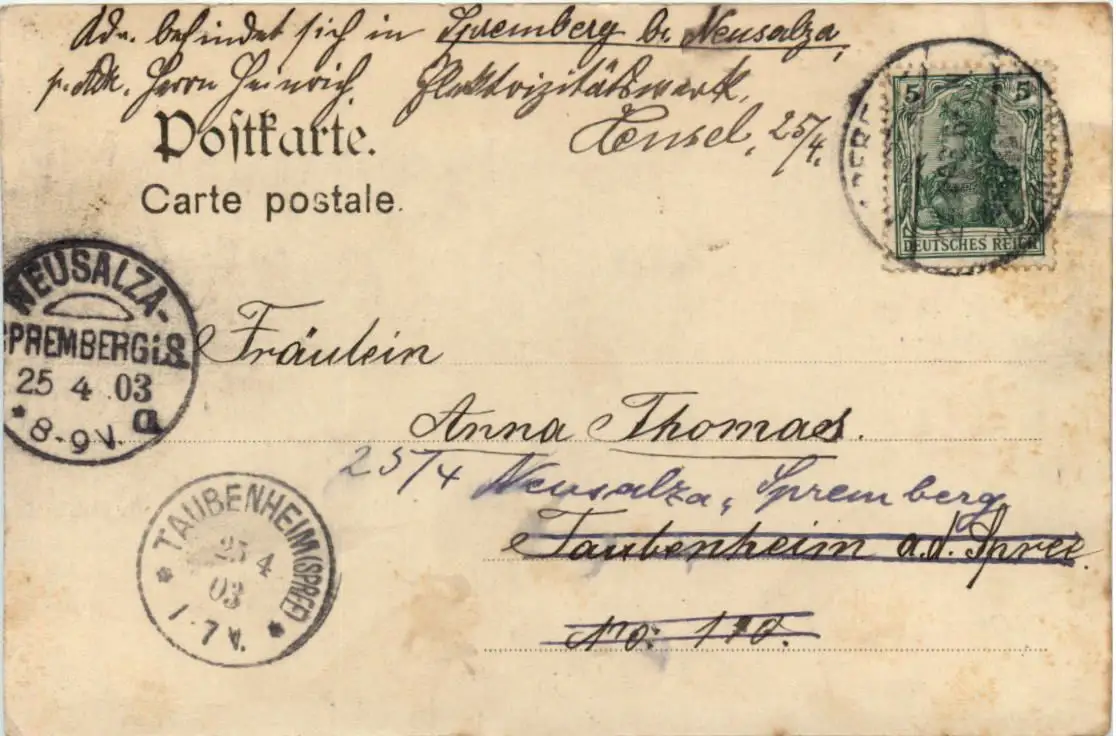 Adr. befindet sich in Spremberg b. Neusalza,
p. Adr. Herrn Heinrich, Elektrizitätswerk.
Hensel, 25/4.
Postkarte.
Carte postale.
5 5
DEUTSCHES REICH
NEUSALZA-
SPREMBERG i. S
25 4 03
* 8-9 V. a
Fräulein
Anna Thomas.
25/4 Neusalza, Spremberg
Taubenheim a. d. Spree.
No: 110.
* TAUBENHEIM (SPREE) *
25 4
03
7 V.